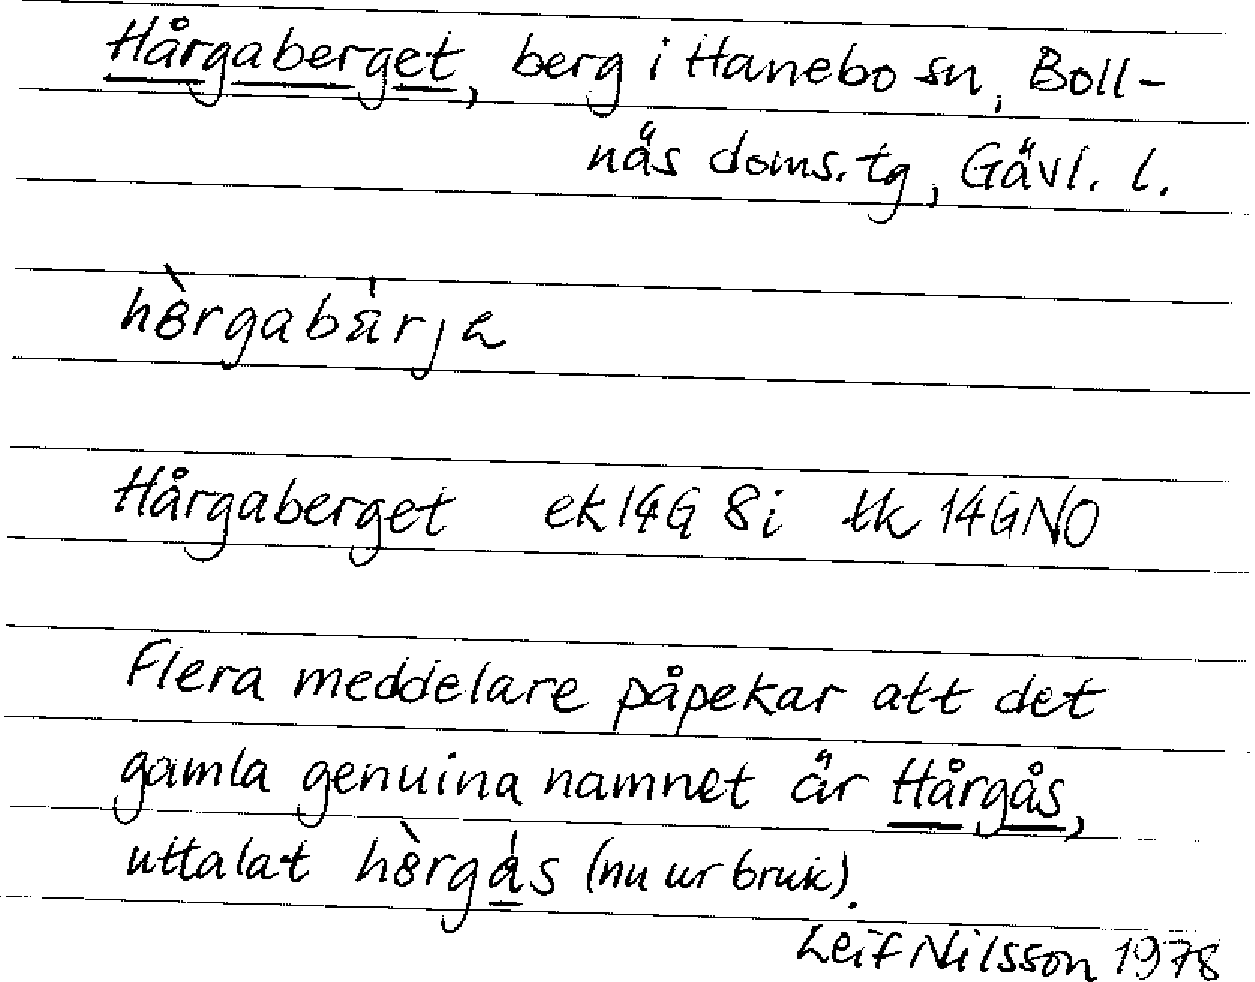 Hårgaberget, berg i Hanebo sn, Boll-
näs doms. tg, Gävl. l.
hȍrgabärje
Hårgaberget ek 14G 8i tk 14GNO
Flera meddelare påpekar att det
gamla genuina namnet är Hårgås,
uttalat (nu ur bruk).
Leif Nilsson 1978